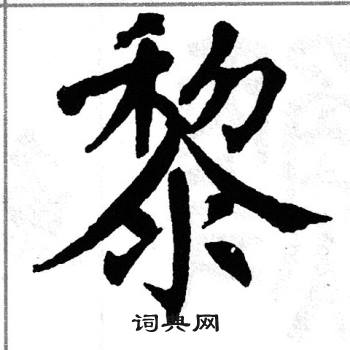 黎
词典网